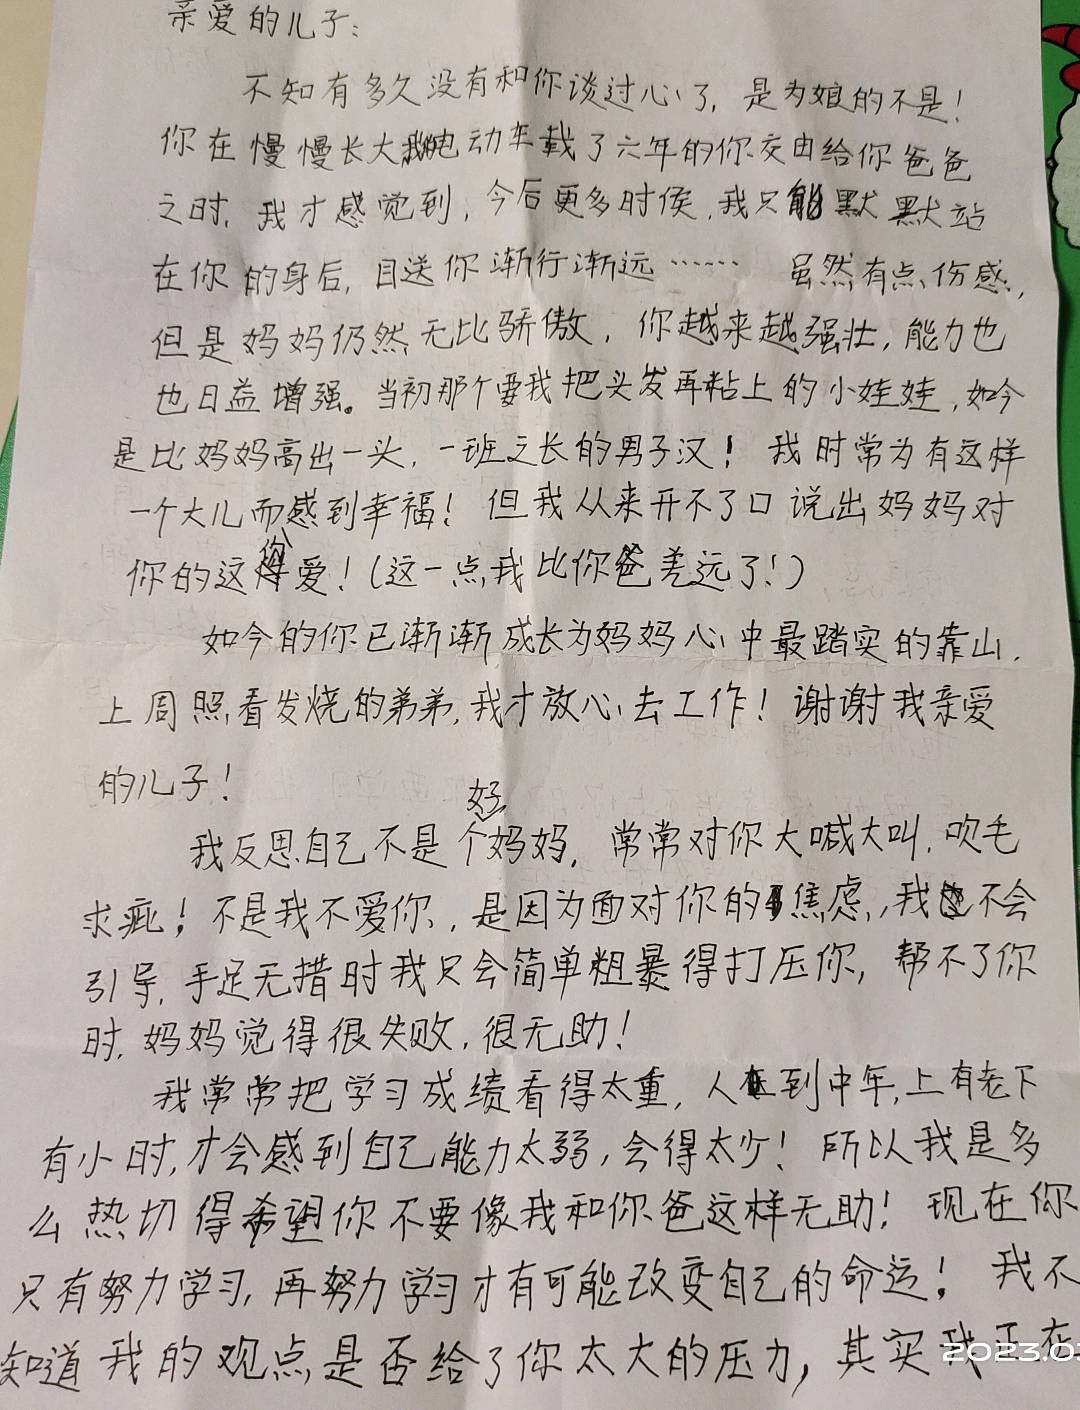 亲爱的儿子：
不知有多久没有和你谈过心了，是为娘的不是！
你在慢慢长大我电动车载了六年的你交由给你爸爸
之时，我才感觉到，今后更多时侯，我只能默默站
在你的身后，目送你渐行渐远……虽然有点伤感，
但是妈妈仍然无比骄傲，你越来越强壮，能力也
也日益增强。当初那个要我把头发再粘上的小娃娃，如今
是比妈妈高出一头，一班之长的男子汉！我时常为有这样
一个大儿而感到幸福！但我从来开不了口说出妈妈对
你的这份爱！（这一点我比你爸差远了！）
如今的你已渐渐成长为妈妈心中最踏实的靠山，
上周照看发烧的弟弟，我才放心去工作！谢谢我亲爱
的儿子！
我反思自己不是个好妈妈，常常对你大喊大叫，吹毛
求疵！不是我不爱你，是因为面对你的焦虑，我不会
引导，手足无措时我只会简单粗暴得打压你，帮不了你
时，妈妈觉得很失败，很无助！
我常常把学习成绩看得太重，人到中年，上有老下
有小时，才会感到自己能力太弱，会得太少！所以我是多
么热切得希望你不要像我和你爸这样无助！现在你
只有努力学习，再努力学习才有可能改变自己的命运！我不
知道我的观点是否给了你太大的压力，其实我正在
2023.0